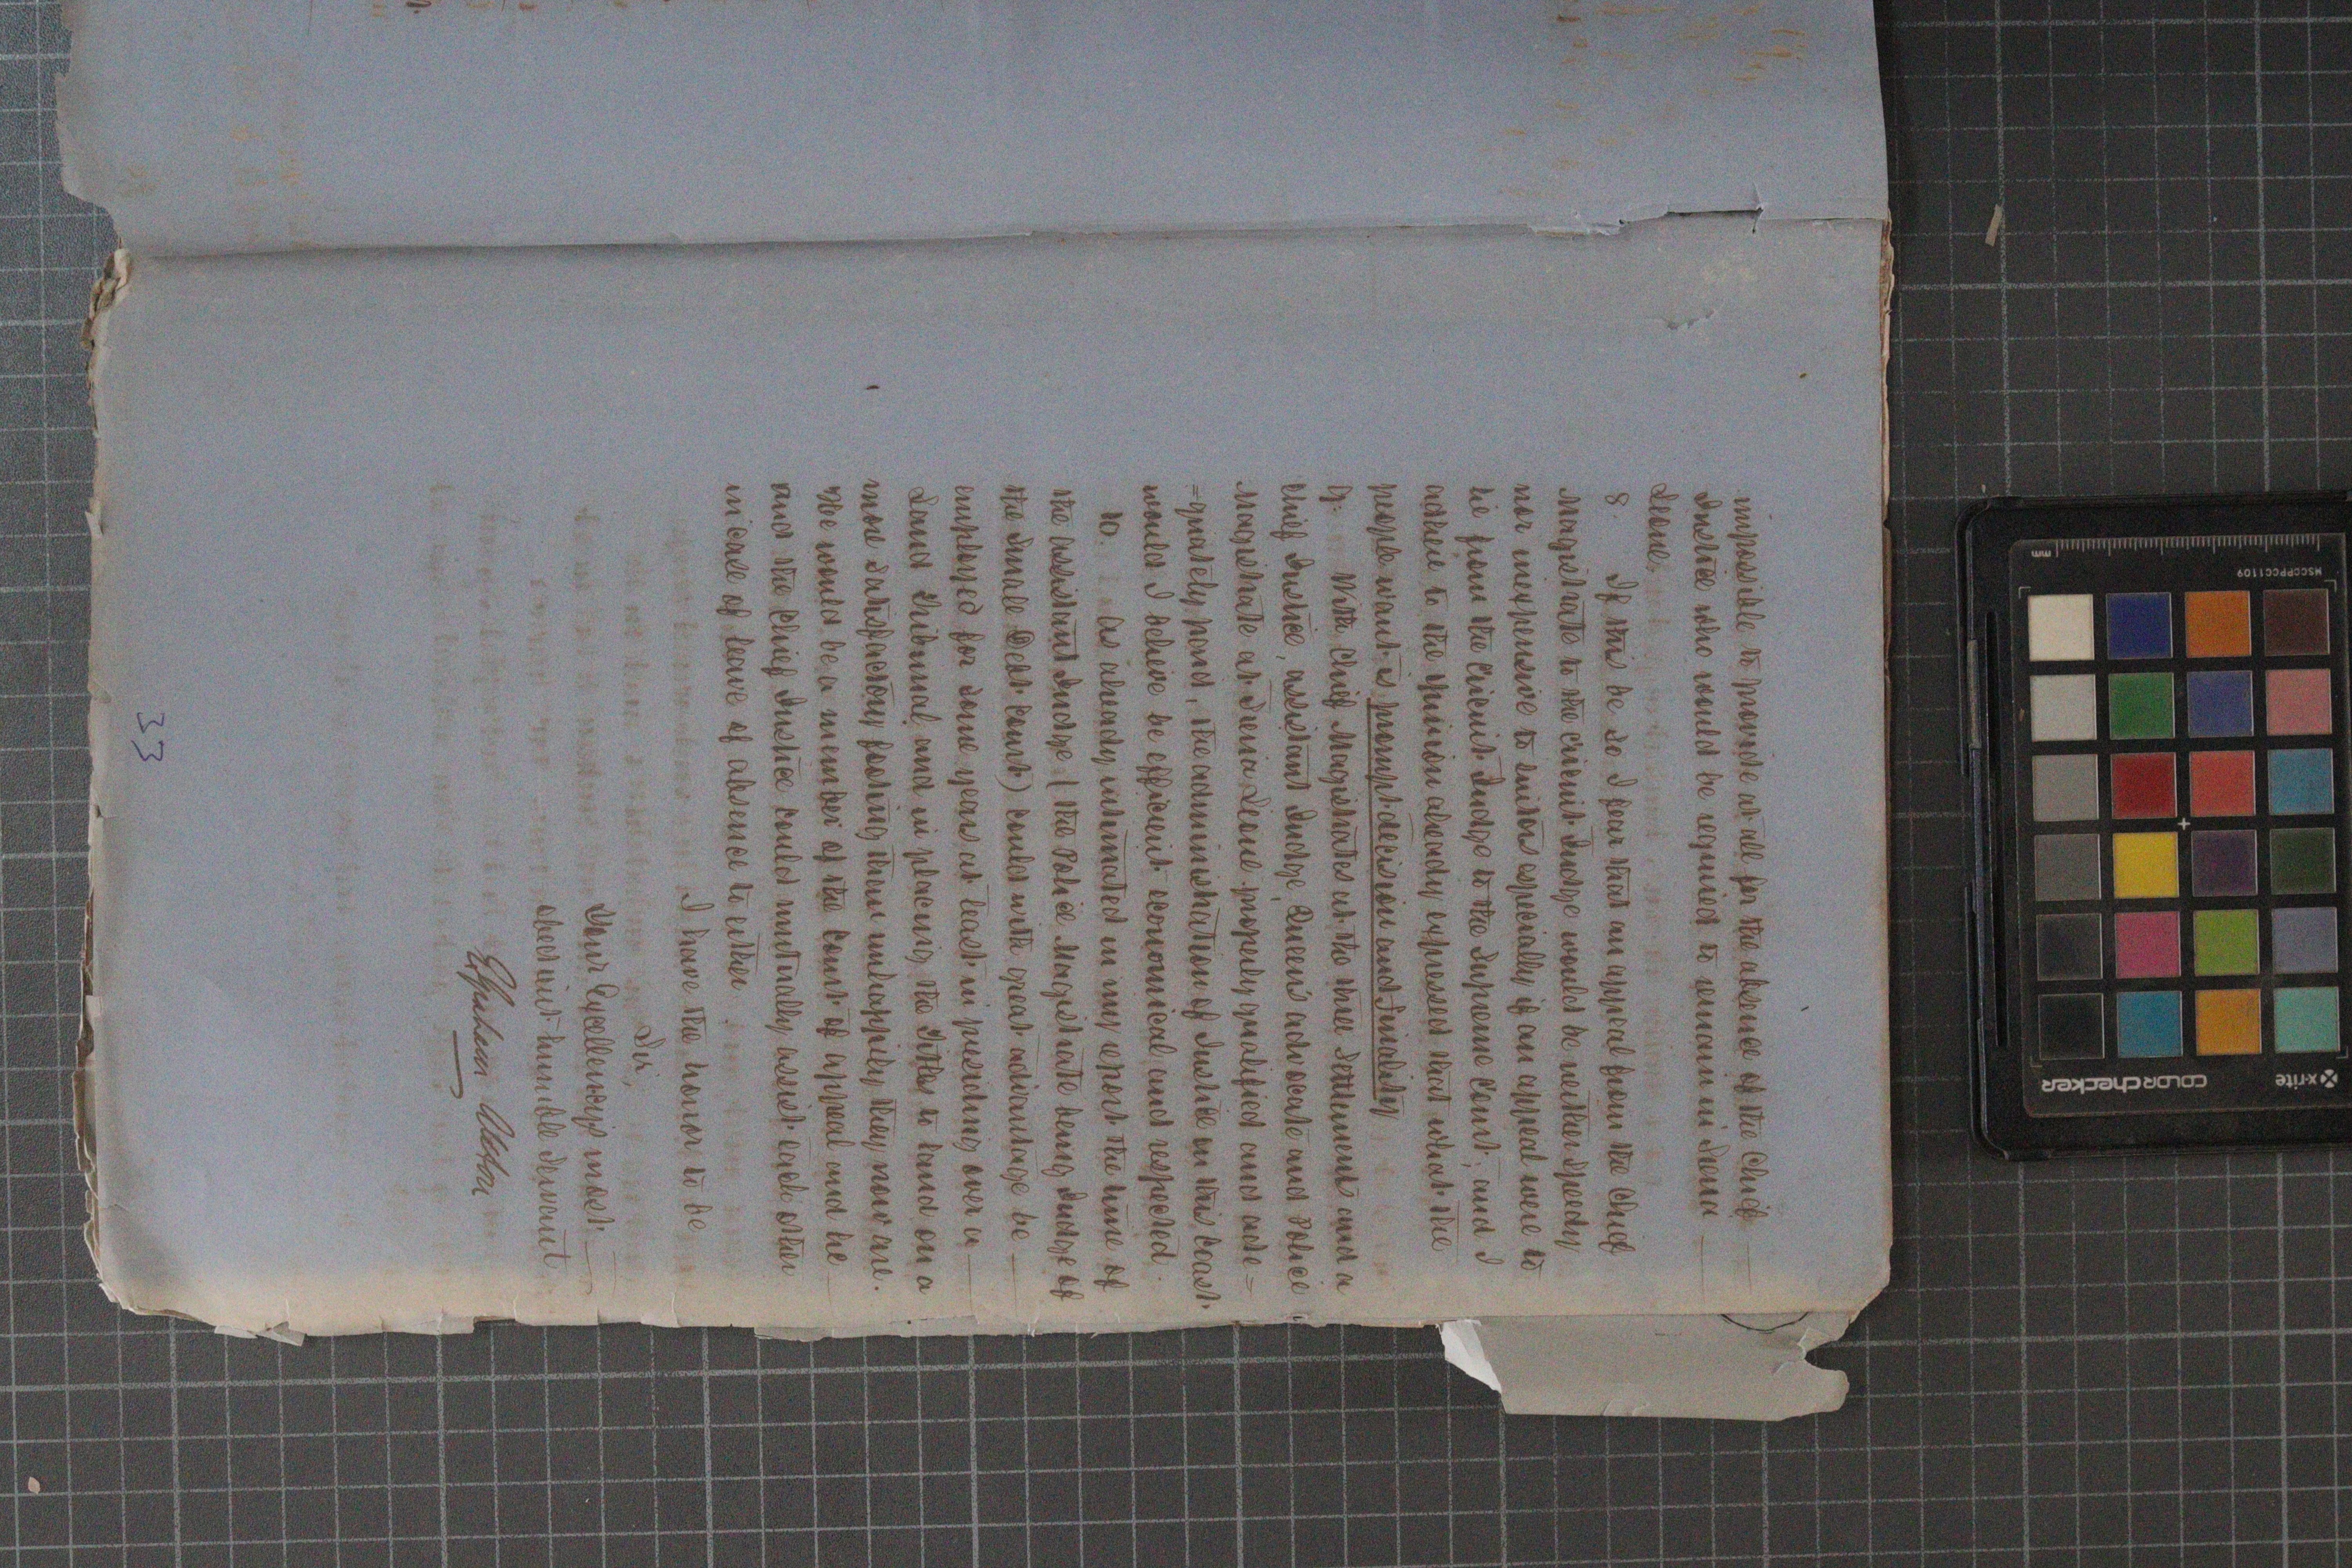 impossible to provide at all for the absence of the Chief
Justice who would be required to remain in Sierra
Leone.
8. If this be so I fear that an appeal from the Chief
Magistrate to the Circuit Judge would be neither speedy
nor inexpensive to suitors especially if an appeal were to
lie from the Circuit Judge to the Supreme Court; and I
adhere to the opinion already expressed that what the
people want is prompt decision and finality
9. With Chief Magistrates at the three Settlements and a
Chief Justice, assistant Judge, Queen's advocate and Police
Magistrate at Sierra Leone properly qualified and ade=
=quately paid, the administration of Justice on this Coast
would I believe be efficient economical and respected.
10. As already intimated in my report the time of
the assistant Judge, (the Police Magistrate being Judge of
the Small Debt Court) could with great advantage be
employed for some years at least in presiding over a
Land Tribunal, and in placing the Titles to land on a
more satisfactory footing than unhappily they now are.
He would be a member of the Court of appeal and he
and the Chief Justice could mutually assist each other
in case of leave of absence to either
I have the honor to be
Sir,
Your Excellency's most
obedient humble Servant
33
mm
MSCCPPCC1109
x-rite
colorchecker